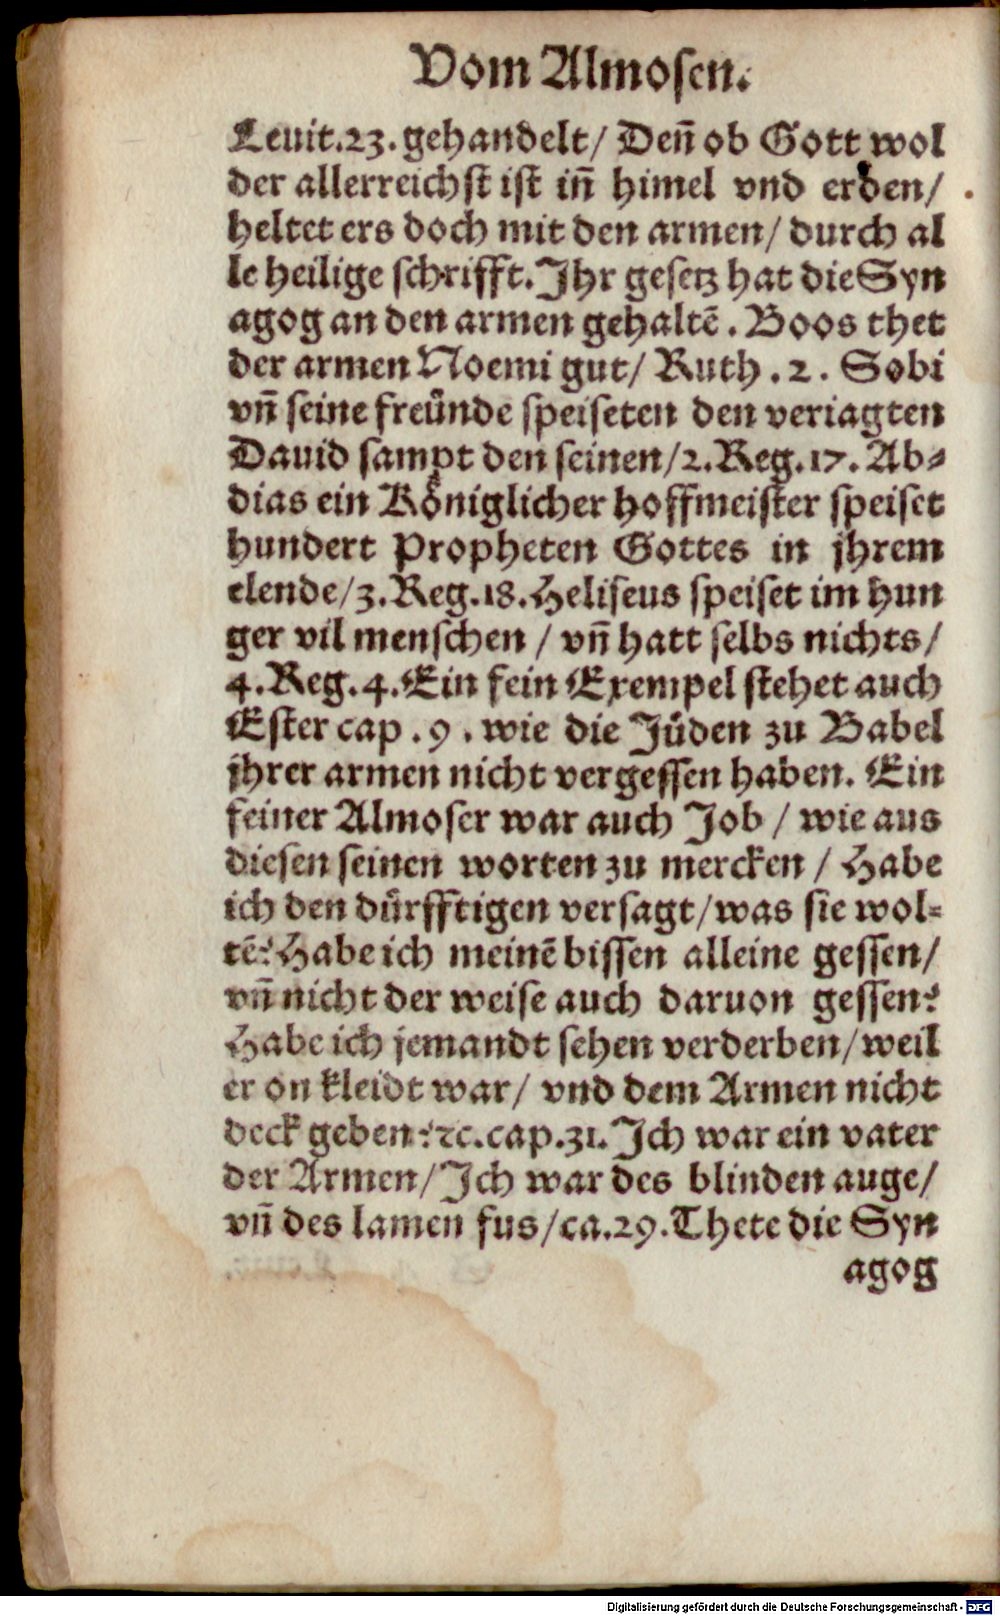 Vom Almosen.
Leuit.23. gehandelt/ Deñ ob Gott wol
der allerreichst ist iñ himel vnd erden/
heltet ers doch mit den armen/ durch al
le heilige schrifft. Jhr gesetz hat die Syn
agog an den armen gehaltē. Boos thet
der armen Noemi gut/ Ruth. 2. Sobi
vñ seine freůnde speiseten den veriagten
Dauid sampt den seinen/2.Reg.17. Ab⸗
dias ein Kôniglicher hoffmeister speiset
hundert Propheten Gottes in jhrem
elende/3.Reg.18.Heliseus speiset im hun
ger vil menschen / vñ hatt selbs nichts/
4.Reg.4.Ein fein Exempel stehet auch
Ester cap. 9. wie die Jůden zu Babel
jhrer armen nicht vergessen haben. Ein
feiner Almoser war auch Job / wie aus
diesen seinen worten zu mercken / Habe
ich den důrfftigen versagt/was sie wol⸗
tē? Habe ich meinē bissen alleine gessen/
vñ nicht der weise auch daruon gessen?
Habe ich jemandt sehen verderben/weil
er on kleidt war/ vnd dem Armen nicht
deck geben?ꝛc.cap.31. Jch war ein vater
der Armen/Jch war des blinden auge/
vñ des lamen fus/ca.29.Thete die Syn
agog
Digitalisierung gefördert durch die Deutsche Forschungsgemeinschaft - DFG